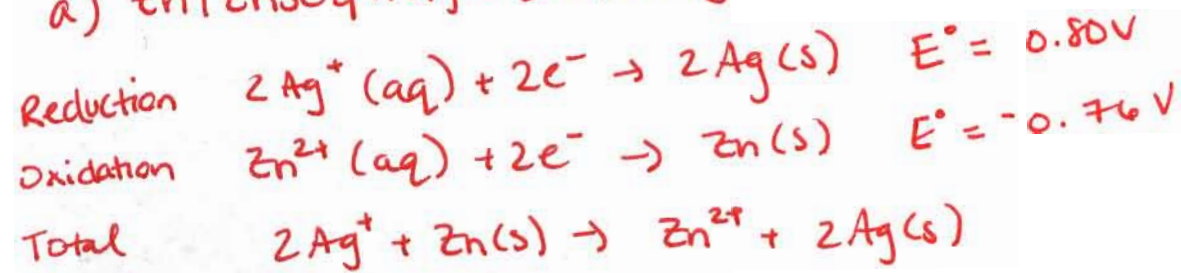 a)
Reduction 2 Ag⁺ (aq) + 2e⁻ → 2 Ag (s) E° = 0.80V
Oxidation Zn²⁺ (aq) + 2e⁻ → Zn (s) E° = -0.76 V
Total 2 Ag⁺ + Zn(s) → Zn²⁺ + 2 Ag (s)